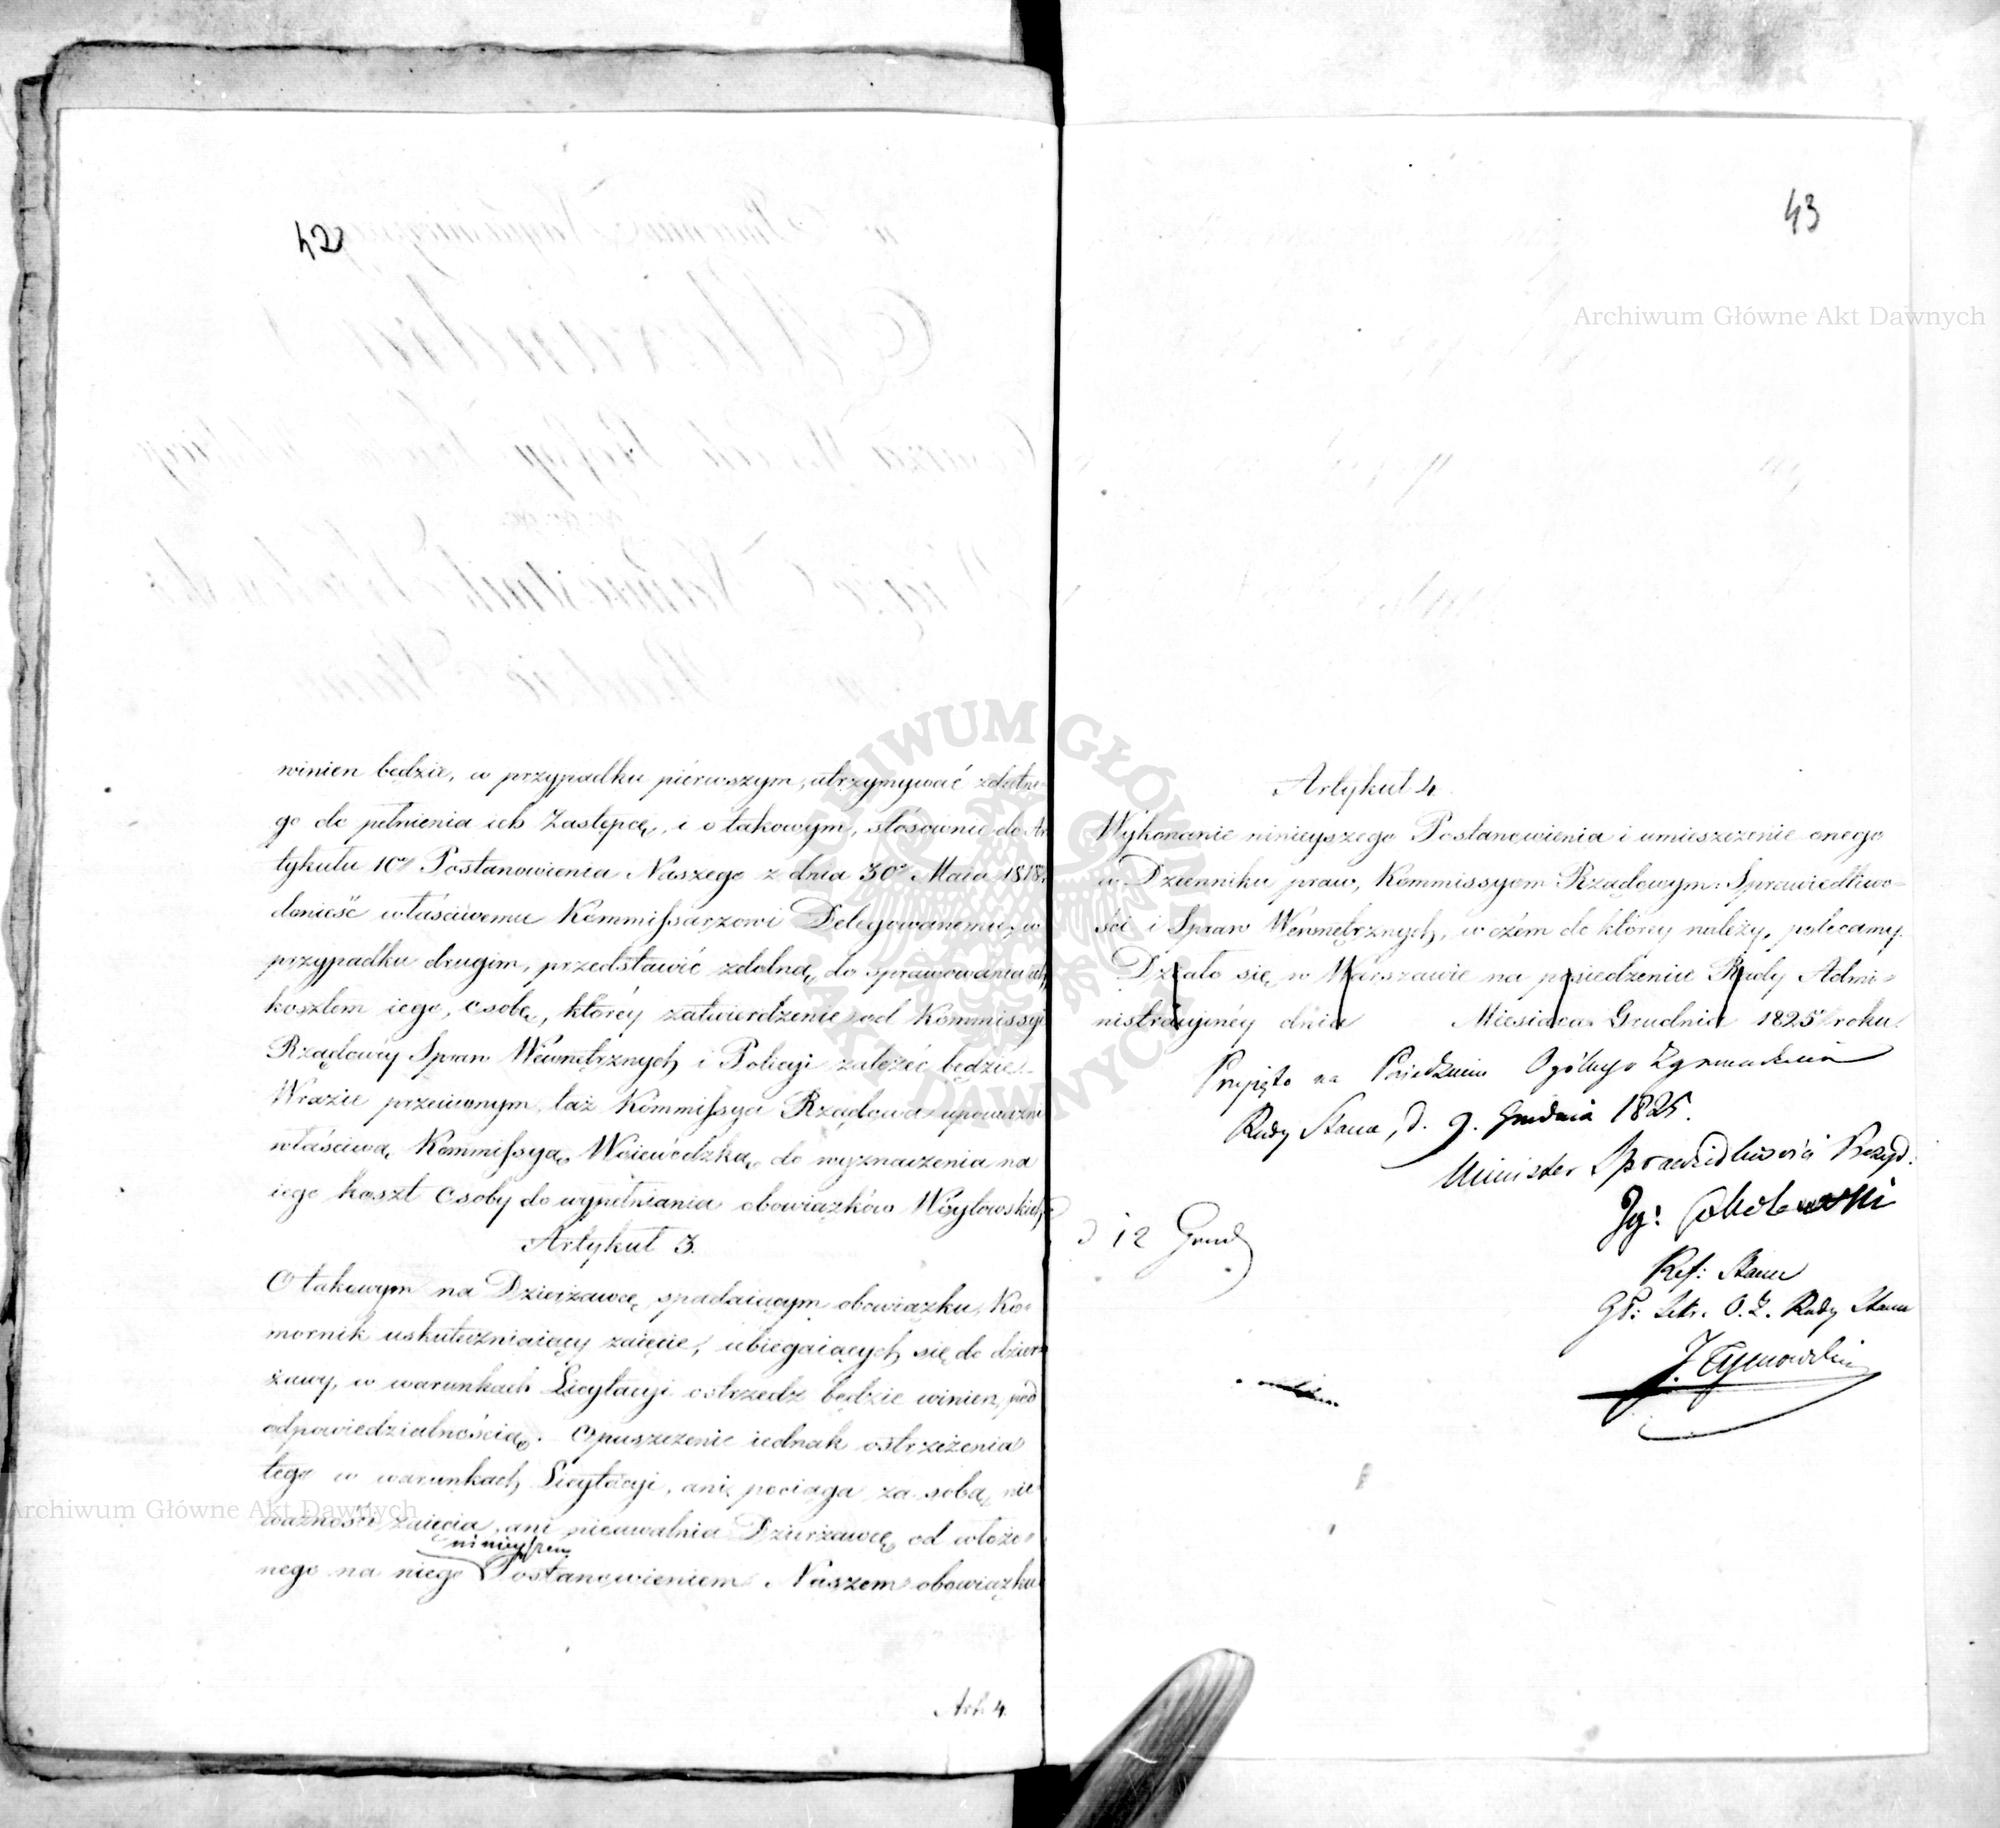 42
winien będzie, w przypadku piérwszym, utrzymywać zdatne-
go do pełnienia ich Zastępcę, i o takowym, stósownie do Ar
tykułu 10º Postanowienia Naszego z dnia 30º Maia 1818
donieść właściwemu Kommissarzowi Delegowanemu, w
przypadku drugim, przedstawić zdolną, do sprawowania ich
kosztem iego, osobę, któréy zatwierdzenie od Kommissyi
Rządowéy Spraw Wéwnętrznych i Policyi zależéć będzie.
W razie przeciwnym, taż Kommissya Rządowa upoważni
właściwą Kommissyą Woiewódzką, do wyznaczenia na
iego koszt osoby do wypełniania obowiązków Wóytowskich
Artykuł 3.
O takowym na Dzierżawcę spadaiącym obowiązku, Ko-
mornik uskuteczniaiący zaięcie, ubiegaiących się do dzier-
żawy, w warunkach Licytacyi ostrzedz będzie winien, pod
odpowiedzialnością. Opuszczenie iednak ostrzeżenia
tego w warunkach Licytacyi, ani pociąga za sobą nie-
ważności zaięcia, ani nieuwalnia Dzierżawcę od włożo-
ninieyszem
nego na niego Postanowieniem Naszem obowiązku
Art. 4.
43
Artykuł 4.
Wykonanie ninieyszego Postanowienia i umieszczenie onego
w Dzienniku praw, Kommissyom Rządowym: Sprawiedliwo-
ści i Spraw Wéwnętrznych, w czém do któréy należy, polecamy.
Działo się w Warszawie na posiedzeniu Rady Admi-
nistracyinéy dnia Miesiąca Grudnia 1825 roku.
Przyięto na Posiedzeniu Ogólnego Zgromadzenia
Rady Stanu, d. 9. Grudnia 1825.
Minister Sprawiedliwości Prezyd:
Ig: Sobolewski
d 12 Grud
Ref: Stanu
Gł: Sekr. O. Z. Rady Stanu
J. Tymowski
Archiwum Główne Akt Dawnych
Archiwum Główne Akt Dawnych
ARCHIWUM GŁÓWNE AKT DAWNYCH